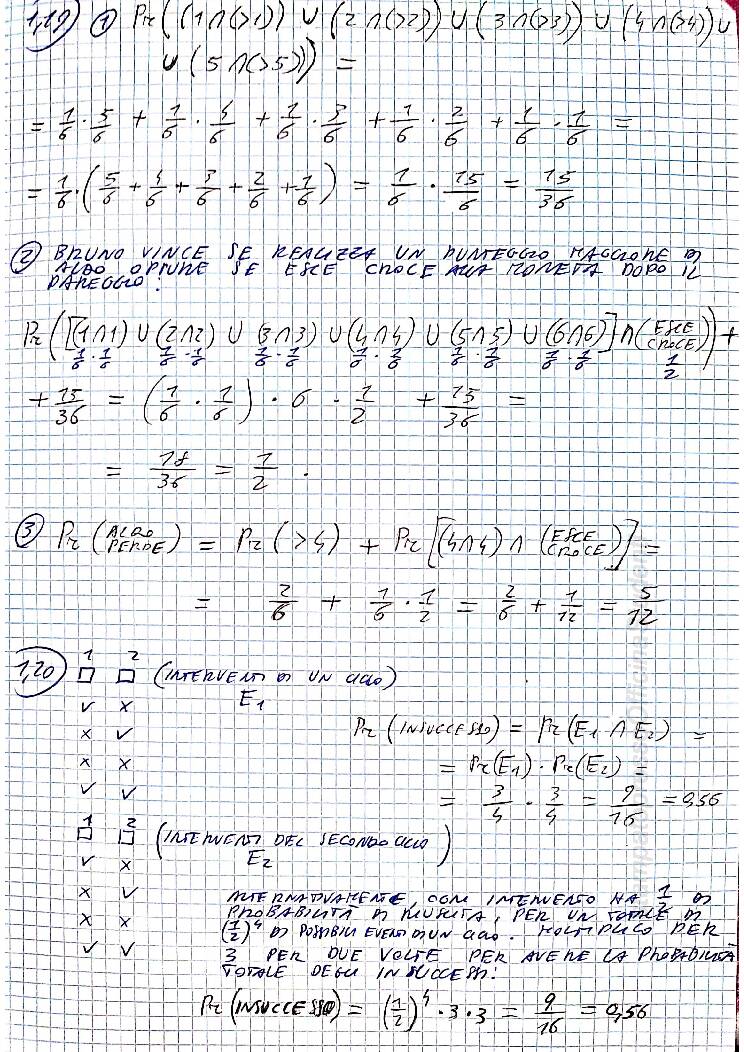 1,19) ① Pr((1∩(>1)) ∪ (2∩(>2)) ∪ (3∩(>3)) ∪ (4∩(>4)) ∪
∪ (5∩(>5))) =
= 1/6 · 5/6 + 1/6 · 4/6 + 1/6 · 3/6 + 1/6 · 2/6 + 1/6 · 1/6 =
= 1/6 · (5/6 + 4/6 + 3/6 + 2/6 + 1/6) = 1/6 · 15/6 = 15/36
② BRUNO VINCE SE REALIZZA UN PUNTEGGIO MAGGIORE DI
ALDO OPPURE SE ESCE CROCE ALLA MONETA DOPO IL
PAREGGIO:
Pr([(1∩1) ∪ (2∩2) ∪ (3∩3) ∪ (4∩4) ∪ (5∩5) ∪ (6∩6)] ∩ (ESCE CROCE)) +
1/6 · 1/6 1/6 · 1/6 1/6 · 1/6 1/6 · 1/6 1/6 · 1/6 1/6 · 1/6 1/2
+ 15/36 = (1/6 · 1/6) · 6 · 1/2 + 15/36 =
= 18/36 = 1/2 .
③ Pr(ALDO PERDE) = Pr(>4) + Pr[(4∩4) ∩ (ESCE CROCE)] =
= 2/6 + 1/6 · 1/2 = 2/6 + 1/12 = 5/12
1,20) 1 2
□ □ (INTERVENTI DI UN CICLO)
E1
✓ x
x ✓
x x
✓ ✓
Pr(INSUCCESSO) = Pr(E1 ∩ E2) =
= Pr(E1) · Pr(E2) =
= 3/4 · 3/4 = 9/16 = 0,56
1 2
□ □ (INTERVENTI DEL SECONDO CICLO)
E2
✓ x
x ✓
x x
✓ ✓
ALTERNATIVAMENTE, OGNI INTERVENTO HA 1/2 DI
PROBABILITÀ DI RIUSCITA, PER UN TOTALE DI
(1/2)^4 DI POSSIBILI EVENTI DI UN CICLO. MOLTIPLICO PER
3 PER DUE VOLTE PER AVERE LA PROBABILITÀ
TOTALE DEGLI INSUCCESSI:
Pr(INSUCCESSO) = (1/2)^4 · 3 · 3 = 9/16 = 0,56